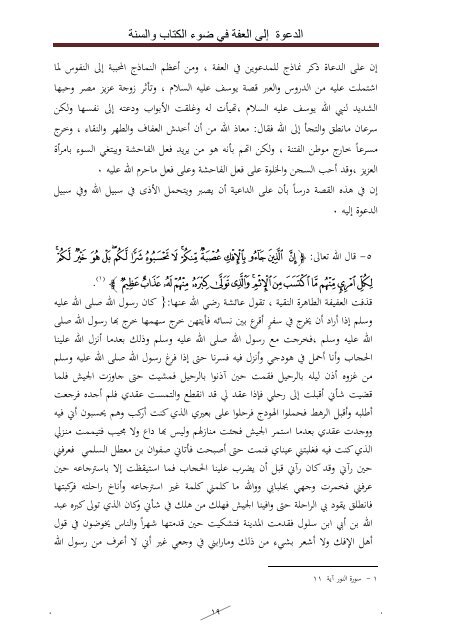 الدعوة إلى العفة في ضوء الكتاب والسنة
إن على الدعاة ذكر نماذج للمدعوين في العفة ، ومن أعظم النماذج المحببة إلى النفوس لما
اشتملت عليه من الدروس والعبر قصة يوسف عليه السلام ، وتأثر زوجة عزيز مصر وحبها
الشديد لنبي الله يوسف عليه السلام ,تهيأت له وغلقت الأبواب ودعته إلى نفسها ولكن
سرعان مانطق والتجأ إلى الله فقال: معاذ الله من أن أخدش العفاف والطهر والنقاء ، وخرج
مسرعاً خارج موطن الفتنة ، ولكن اتهم بأنه هو من يريد فعل الفاحشة ويبتغي السوء بامرأة
العزيز ،وقد أحب السجن والخلوة على فعل الفاحشة وعلى فعل ماحرم الله عليه .
إن في هذه القصة درساً بأن على الداعية أن يصبر ويتحمل الأذى في سبيل الله وفي سبيل
الدعوة إليه .
٥- قال الله تعالى: ﴿ إِنَّ ٱلَّذِينَ جَآءُو بِٱلْإِفْكِ عُصْبَةٌ مِّنكُمْ ۚ لَا تَحْسَبُوهُ شَرًّا لَّكُم ۖ بَلْ هُوَ خَيْرٌ لَّكُمْ ۚ
لِكُلِّ ٱمْرِئٍ مِّنْهُم مَّا ٱكْتَسَبَ مِنَ ٱلْإِثْمِ ۚ وَٱلَّذِى تَوَلَّىٰ كِبْرَهُۥ مِنْهُمْ لَهُۥ عَذَابٌ عَظِيمٌ ﴾ (١).
قذفت العفيفة الطاهرة النقية ، تقول عائشة رضي الله عنها:{ كان رسول الله صلى الله عليه
وسلم إذا أراد أن يخرج في سفرٍ أقرع بين نسائه فأيتهن خرج سهمها خرج بها رسول الله صلى
الله عليه وسلم ،فخرجت مع رسول الله صلى الله عليه وسلم وذلك بعدما أنزل الله علينا
الحجاب وأنا أحمل في هودجي وأنزل فيه فسرنا حتى إذا فرغ رسول الله صلى الله عليه وسلم
من غزوه أذن ليله بالرحيل فقمت حين آذنوا بالرحيل فمشيت حتى جاوزت الجيش فلما
قضيت شأني أقبلت إلى رحلي فإذا عقد لي قد انقطع والتمست عقدي فلم أجده فرجعت
أطلبه وأقبل الرهط فحملوا الهودج فرحلوا على بعيري الذي كنت أركب وهم يحسبون أني فيه
ووجدت عقدي بعدما استمر الجيش فجئت منازلهم وليس بها داع ولا مجيب فتيممت منزلي
الذي كنت فيه فغلبتني عيناي فنمت حتى أصبحت فأتاني صفوان بن معطل السلمي فعرفني
حين رآني وقد كان رآني قبل أن يضرب علينا الحجاب فما استيقظت إلا باسترجاعه حين
عرفني فخمرت وجهي بجلبابي ووالله ما كلمني كلمة غير استرجاعه وأناخ راحلته فركبتها
فانطلق يقود بي الراحلة حتى وافينا الجيش فهلك من هلك في شأني وكان الذي تولى كبره عبد
الله بن أبي ابن سلول فقدمت المدينة فتشكيت حين قدمتها شهراً والناس يخوضون في قول
أهل الإفك ولا أشعر بشيء من ذلك ومارابني في وجعي غير أني لا أعرف من رسول الله
١ - سورة النور آية ١١
١٩